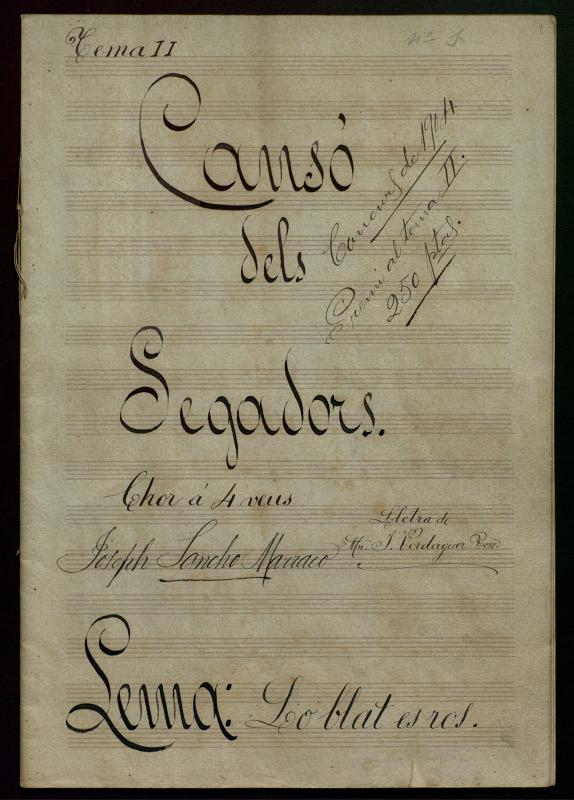 Tema II
nº 5
Cansó
dels
Segadors.
Concurs de 1904
Premi al tema II.
250 ptas.
Chor á 4 veus
Joseph Sancho Marraco
Lletra de
Mn. J. Verdaguer Pvre
Lema: Lo blat es ros.